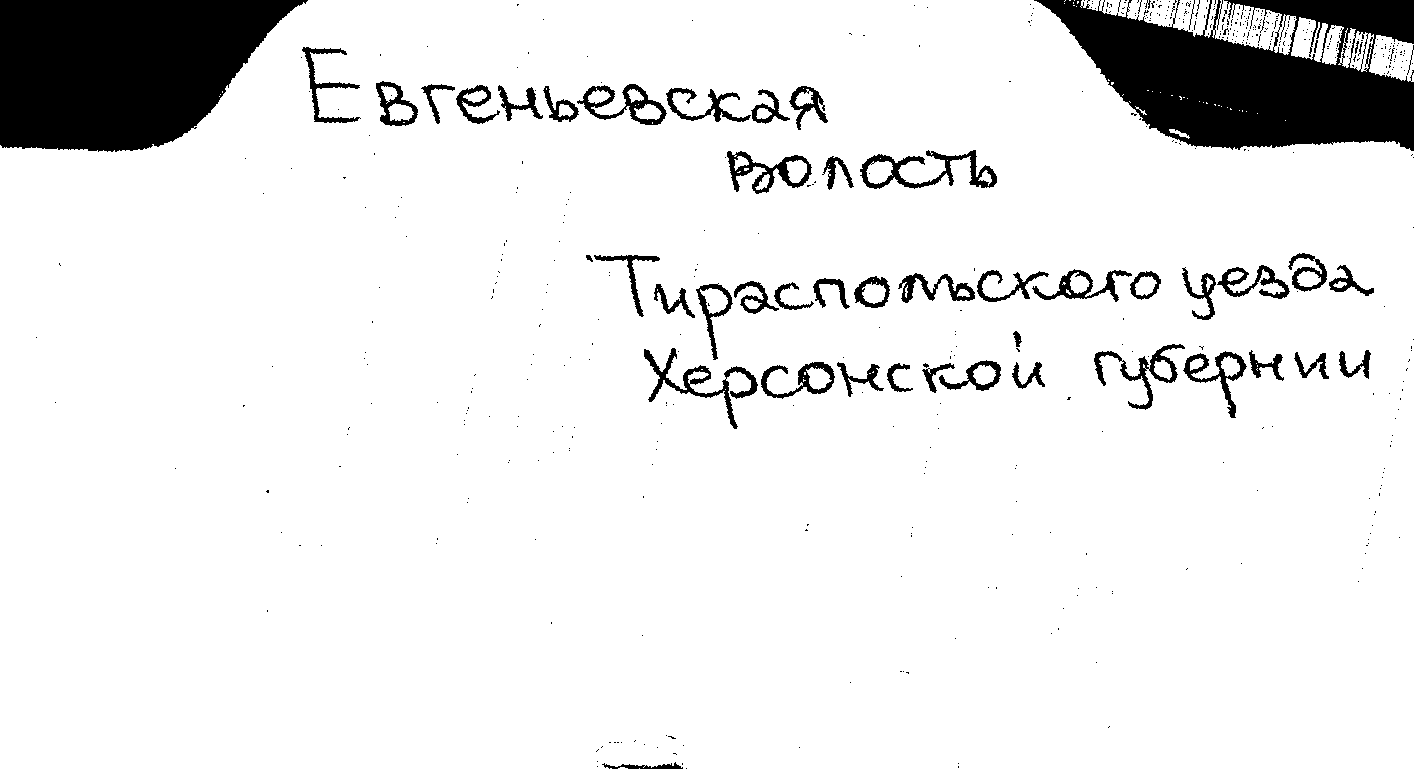 Евгеньевская
волость
Тираспольского уезда
Херсонской губернии